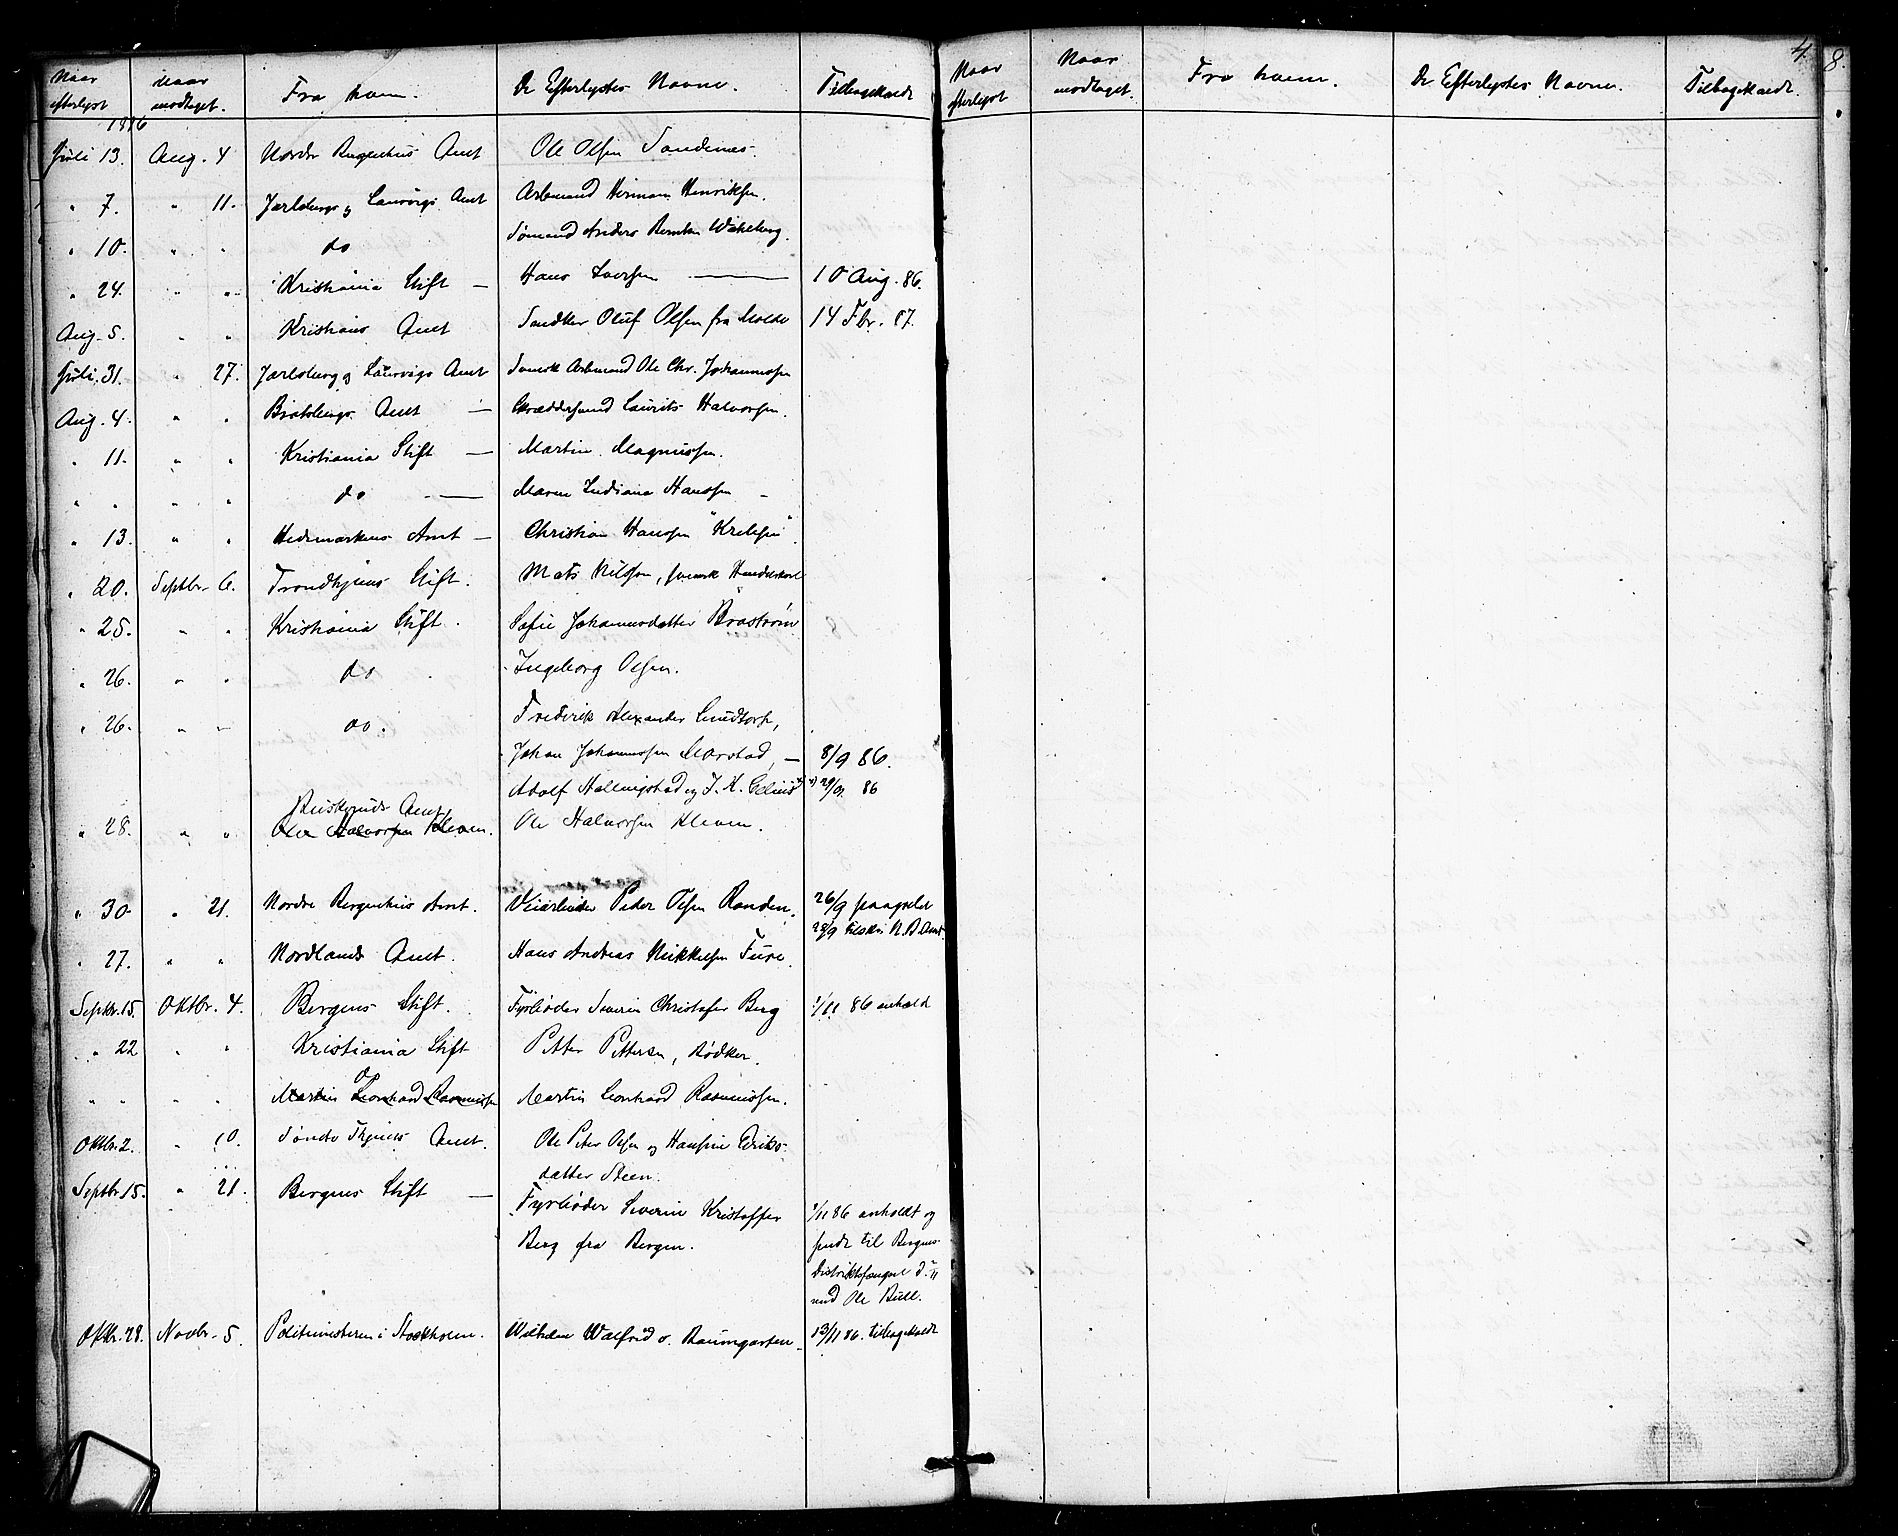 Naar efterlyst Naar modtaget. Fra hvem. De Efterlystes Navne. Tilbagekaldt
1886
Juli 13. Aug. 4 Nordre Bergenhus Amt Ole Olsen Sandenes.
" 7. " 11. Jarlsberg og Laurvigs Amt Arbmand Herman Henriksen.
" 10. " " do Sømand Anders Berntsen
" 24. " " Kristiania Stift — Hans Larsen — 10 Aug. 86.
Aug. 5. " " Kristians Amt Snedker Oluf Olsen fra Molde 14 Fbr. 87.
Juli 31. " 27. Jarlsberg og Laurvigs Amt Svensk Arbmand Ole Chr. Johannessen
Aug. 4. " " Bratsbergs Amt — Skræddersvend Laurits Halvorsen.
" 11. " " Kristiania Stift — Martin Magnussen.
" " " " do — Maren Indiana Hanssen —
" 13. " " Hedemarkens Amt — Christian Hanssen "Krebsen".
" 20. Septbr. 6. Trondhjems Stift. Mats Nilsson, svensk Handelskarl
" 25. " " Kristiania Stift. Sofie Johannesdatter Brostrøm
" 26. " " do Ingeborg Olsen.
" 26. " " do. Frederik Alexander Lundtorp,
Johan Johannessen Morstad, — 8/9 86.
Adolf Hallingstad og J. K. Gelius x) x) 29/9. 86
Buskeruds Amt
" 28. " " Ole Halvorsen Kleven. Ole Halvorsen Kleven.
" 30. " 21. Nordre Bergenhus Amt. Veiarbeider Peder Olsen Randen. 26/9 paagreben
28/9 tilskr. N. B. Amt.
" 27. " " Nordlands Amt. Hans Andreas Mikkelsen Fure.
Septbr. 15. Oktbr. 4. Bergens Stift. Fyrbøder Severin Christofer Berg 1/11 86 anholdt
" 22 " " Kristiania Stift Petter Pettersen, Bødker.
do
" " " " Martin Leonhard Rasmussen Martin Leonhard Rasmussen.
Oktbr. 2. " 10. Søndre Thjems Amt. Ole Peter Olsen og Hansine Eriks-
datter Steen.
Septbr. 15. " 21. Bergens Stift — Fyrbøder Severin Kristoffer 1/11 86 anholdt og
Berg fra Bergen. sendt til Bergens
Distriktsfængsel d. 2/11
med Ole Bull.
Oktbr. 29. Novbr. 5. Politimesteren i Stockholm. Wilhelm Walfrid v. Baumgarten. 13/11 86. tilbagekaldt
48.
Naar efterlyst Naar modtaget. Fra hvem. De Efterlystes Navne. Tilbagekaldt.